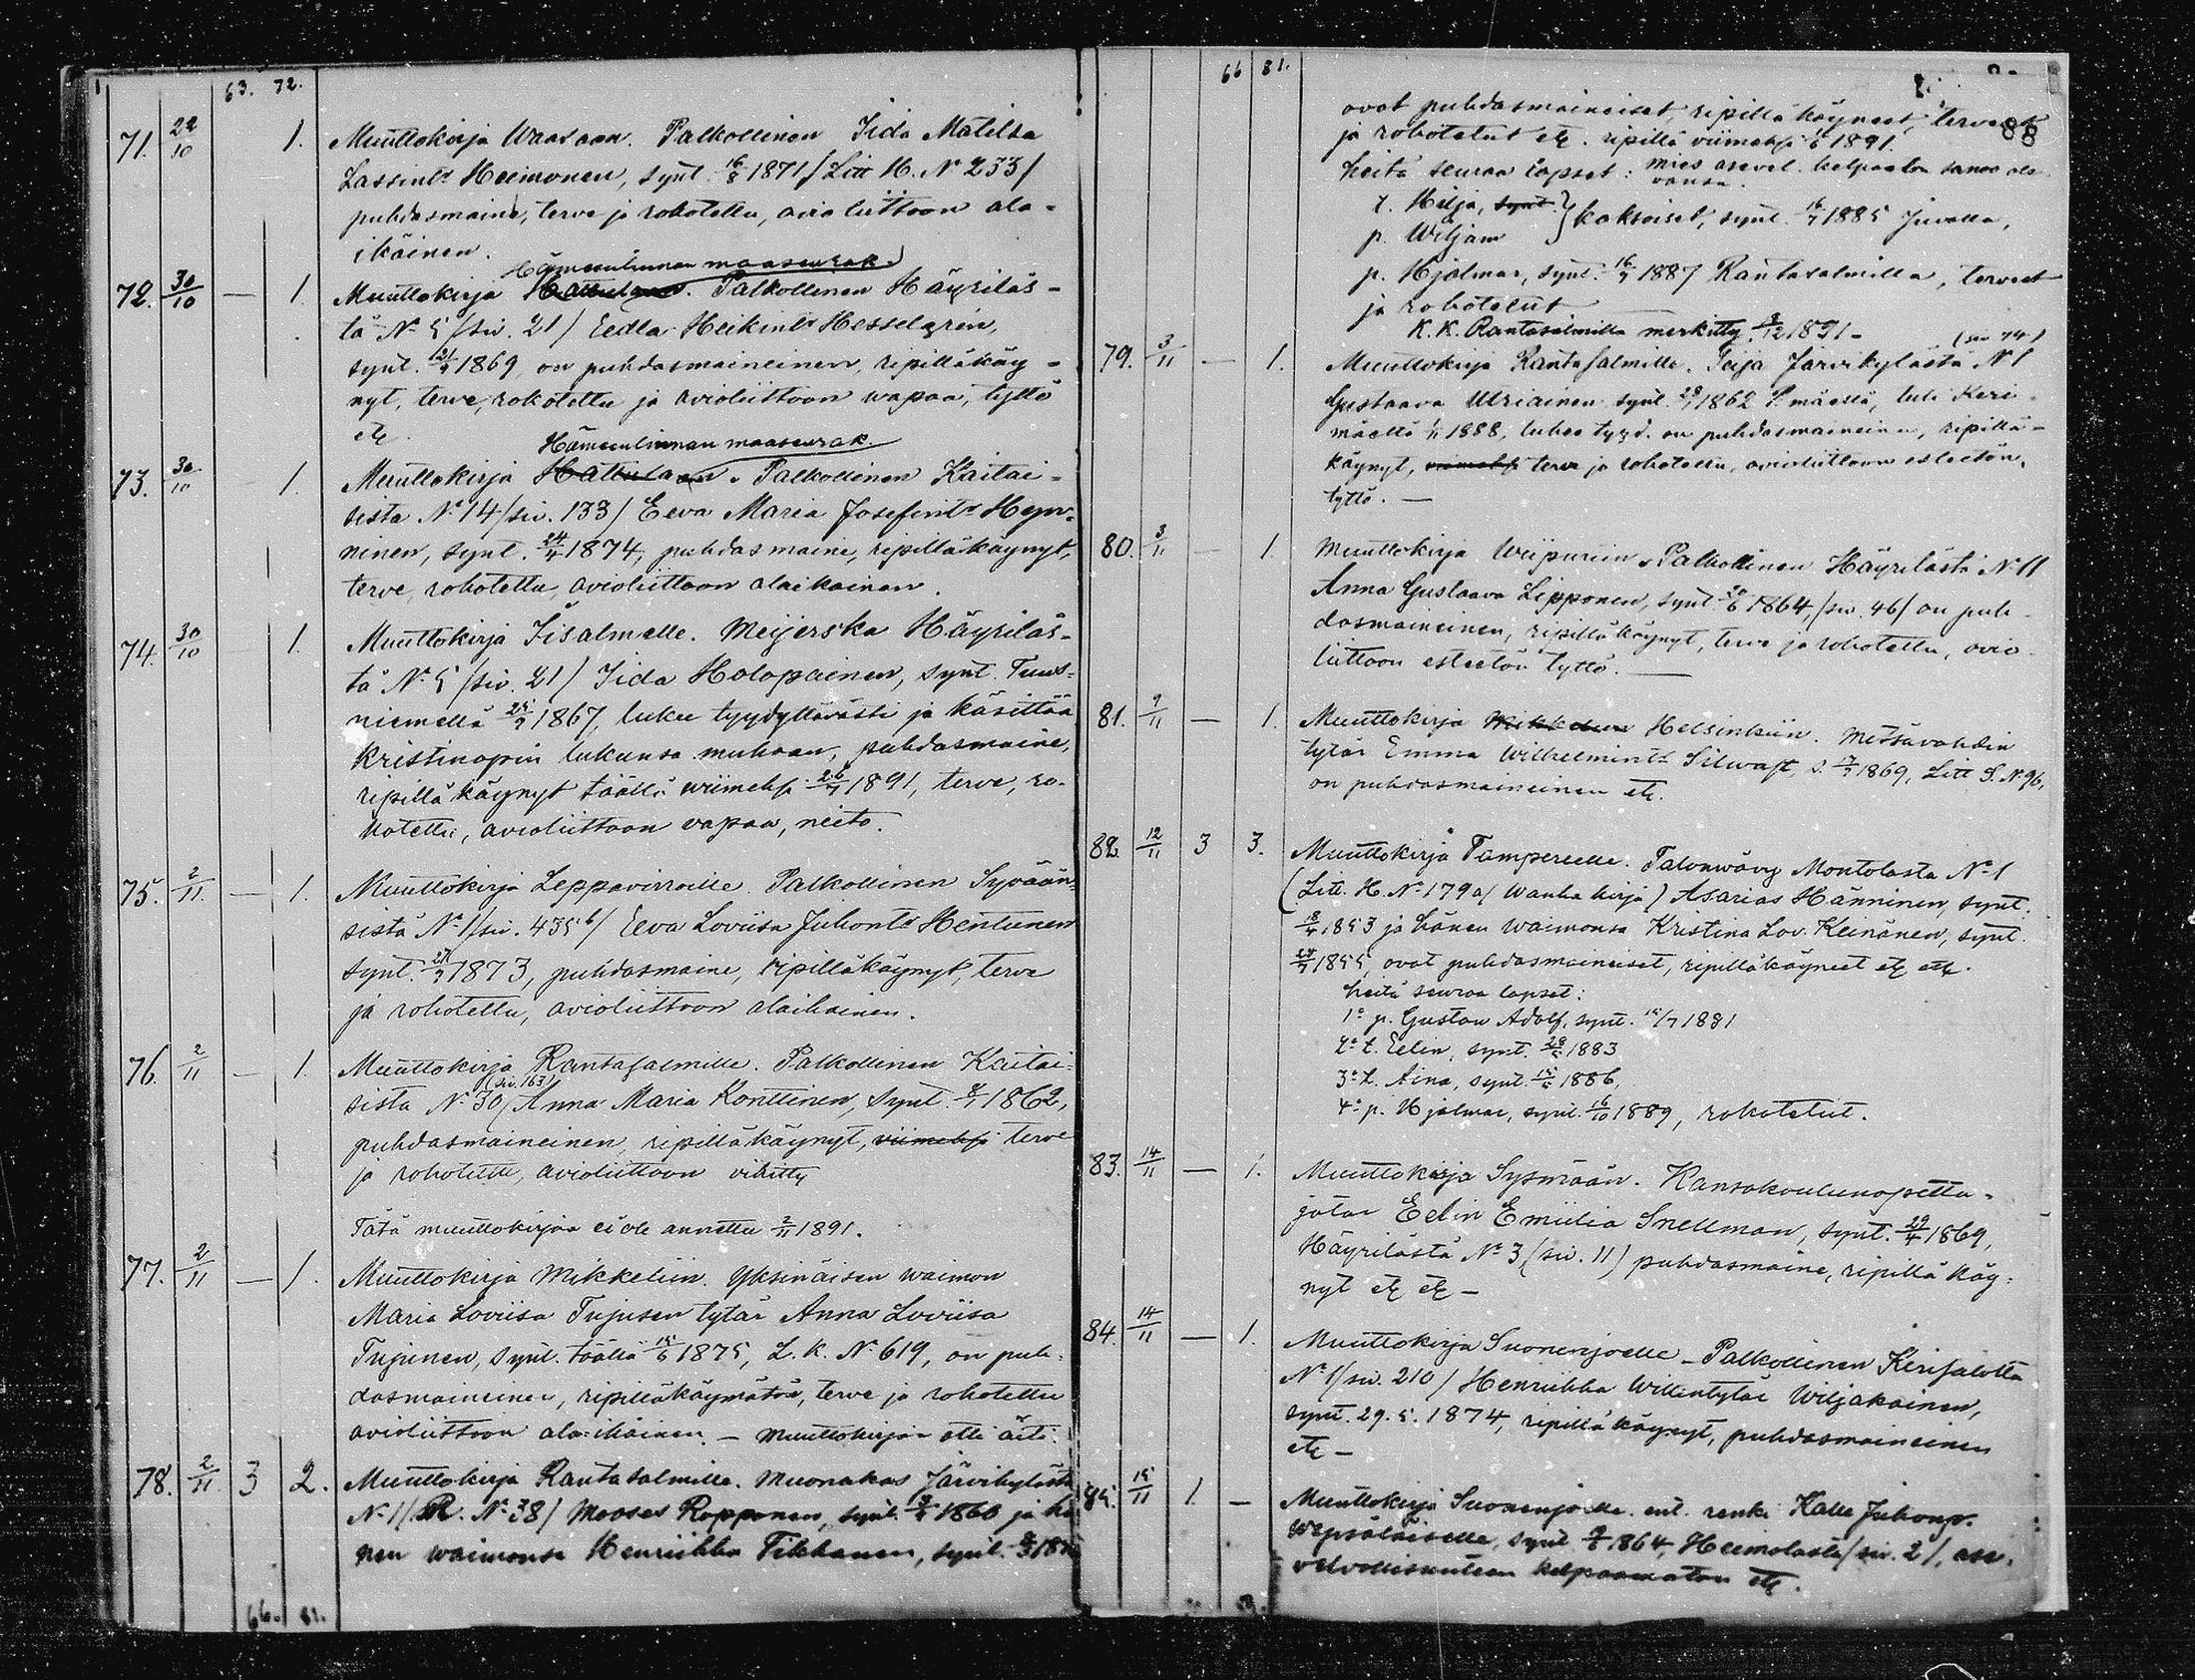 63. 72.
71. 22/10 1. Muuttokirja Waasaan. Palkollinen Iida Matilda
Lassint^r Heimonen, synt. 16/8 1871 / Litt H. N° 233 /
puhdasmaine, terve ja rokotettu, avioliittoon ala-
ikäinen.
Hämeenlinnan maaseurak.
72. 30/10 — 1. Muuttokirja Hattulaan. Palkollinen Häyriläs-
tä N° 5 /siv. 21/ Eedla Heikint^r Hesselgrén,
synt. 21/9 1869, on puhdasmaineinen, ripilläkäy-
nyt, terve, rokotettu ja avioliittoon wapaa, tyttö
etc.
Hämeenlinnan maaseurak.
73. 30/10 1. Muuttokirja Hattulaan. Palkollinen Kaitai-
sista N° 14 /siv. 133/ Eeva Maria Josefint^r Hyvö-
ninen, synt. 24/4 1874, puhdasmaine, ripilläkäynyt,
terve, rokotettu, avioliittoon alaikäinen.
74. 30/10 1. Muuttokirja Iisalmelle. Meijerska Häyriläs-
tä N° 5 /siv. 21/ Iida Holopainen, synt. Tuus-
niemellä 25/7 1867, lukee tyydyttävästi ja käsittää
kristinopin lukunsa mukaan, puhdasmaine,
ripilläkäynyt täällä wiimeksi 26/7 1891, terve, ro-
kotettu, avioliittoon vapaa, neito.
75. 2/11. — 1. Muuttokirja Leppävirroille. Palkollinen Syvään-
sistä N° 1 /siv. 435 b/ Eeva Loviisa Juhont^r Hentunen
synt. 27/7 1873, puhdasmaine, ripilläkäynyt, terve
ja rokotettu, avioliittoon alaikäinen.
76. 2/11 — 1. Muuttokirja Rantasalmille. Palkollinen Kaitai-
(siv. 163)
sista N° 30 / Anna Maria Konttinen, synt. 8/1 1862,
puhdasmaineinen, ripilläkäynyt, viimeksi terve
ja rokotettu, avioliittoon vihitty
Tätä muuttokirjaa ei ole annettu 2/11 1891.
77. 2/11 — 1. Muuttokirja Mikkeliin. Yksinäisen waimon
Maria Loviisa Tujusen tytär Anna Loviisa
Tujunen, synt. täällä 15/6 1875, L. K. N° 619, on puh-
dasmaineinen, ripilläkäymätön, terve ja rokotettu
avioliittoon alaikäinen. — Muuttokirjan otti äiti.
78. 2/11 3 2. Muuttokirja Rantasalmille. Muonakas Järvikylästä
N° 1 / R. N° 38 / Mooses Ropponen, synt. 1860 ja hä-
nen waimonsa Henriikka Tikkanen, synt.
66. 81.
66 81.
88
ovat puhdasmaineiset, ripilläkäyneet, terveet
ja rokotetut etc. ripillä viimeksi 1891.
heitä seuraa lapset: mies asevel. kelpaaton sanoo ole-
vansa.
t. Hilja, synt } kaksoiset, synt. 16/7 1885 Juvalla,
p. Wiljam
p. Hjalmar, synt. 16/9 1887 Rantasalmilla, terveet
ja rokotetut
K. K. Rantasalmilla merkitty 1891 —
(siv 74)
79. 3/11 — 1. Muuttokirja Rantasalmille. Piija Järvikylästä N° 1
Gustaava Ulriainen synt. 1862 P.mäellä, tuli Keri-
mäeltä 1888, lukee tyyd. on puhdasmaineinen, ripillä-
käynyt, viimeksi terve ja rokotettu, avioliittoon esteetön,
tyttö. —
80. 3/11 — 1. Muuttokirja Wiipuriin. Palkollinen Häyrilästä N° 11
Anna Gustaava Lipponen, synt 20/6 1864, /siv. 46/ on puh-
dasmaineinen, ripilläkäynyt, terve ja rokotettu, avio-
liittoon esteetön tyttö. —
81. 9/11 — 1. Muuttokirja Mikkeliin Helsinkiin. Metsävahdin
tytär Emma Wilhelmint^r Silwast, s. 1869, Litt S. N° 96,
on puhdasmaineinen etc.
82. 12/11 3 3. Muuttokirja Tampereelle. Talonwävy Montolasta N° 1
(Litt. H. N° 179 a / Wanha kirja) Asarias Hänninen, synt.
18/4 1853 ja hänen waimonsa Kristina Lov. Keinänen, synt.
1855, ovat puhdasmaineiset, ripilläkäyneet etc etc.
heitä seuraa lapset:
1° p. Gustav Adolf, synt. 15/7 1881
2° t. Eelin, synt. 28/5 1883
3° t. Aina, synt. 15/5 1886,
4° p. Hjalmar, synt. 16/10 1889, rokotetut.
83. 14/11 — 1. Muuttokirja Sysmään. Kansakoulunopetta-
jatar Eelin Emiilia Snellman, synt. 29/4 1869,
Häyrilästä N° 3, (siv. 11) puhdasmaine, ripilläkäy-
nyt etc etc —
84. 14/11 — 1. Muuttokirja Suonenjoelle — Palkollinen Kerisalolta
N° 1 /siv. 210/ Henriikka Willentytär Wiljakainen,
synt. 29. 5. 1874, ripilläkäynyt, puhdasmaineinen
etc —
85. 15/11 1. — Muuttokirja Suonenjoelle ent. renki Kalle Juhonp.
Wepsäläiselle, synt 1864, Heimolasta /siv. 2/, ase-
velvollisuuteen kelpaamaton etc.